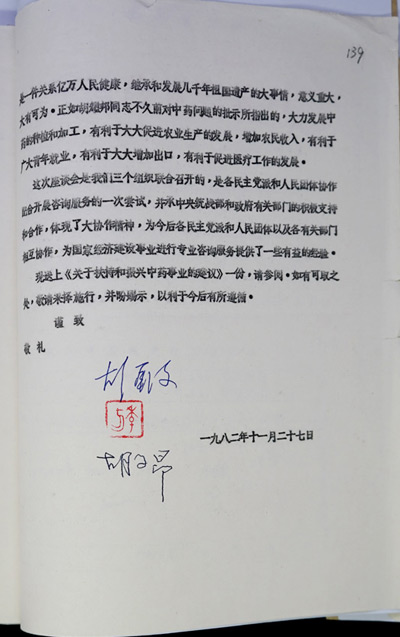 139
是一件关系亿万人民健康，继承和发展几千年祖国遗产的大事情，意义重大，
大有可为。正如胡耀邦同志不久前对中药问题的批示所指出的，大力发展中
药的种植和加工，有利于大大促进农业生产的发展，增加农民收入，有利于
广大青年就业，有利于大大增加出口，有利于促进医疗工作的发展。
这次座谈会是我们三个组织联合召开的，是各民主党派和人民团体协作
配合开展咨询服务的一次尝试，并承中央统战部和政府有关部门的积极支持
和合作，体现了大协作精神，为今后各民主党派和人民团体以及各有关部门
相互协作，为国家经济建设事业进行专业咨询服务提供了一些有益的经验。
现送上《关于扶持和振兴中药事业的建议》一份，请参阅。如有可取之
处，敬请采择施行，并盼赐示，以利于今后有所遵循。
谨致
敬礼
胡厥文
方季
胡子昂
一九八二年十一月二十七日